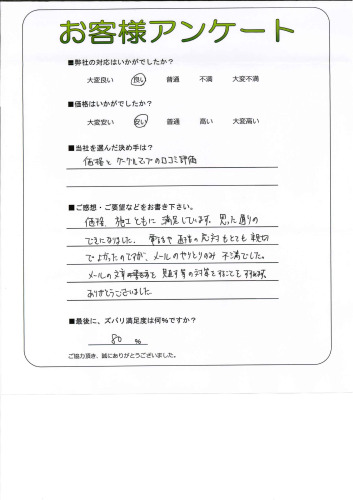 お客様アンケート
■弊社の対応はいかがでしたか?
大変良い 良い 普通 不満 大変不満
■価格はいかがでしたか?
大変安い 安い 普通 高い 大変高い
■当社を選んだ決め手は?
価格とグーグルマップの口コミ評価
■ご感想・ご要望などをお書き下さい。
価格、施工ともに満足しています。思った通りの
できになりました。電話や直接の応対もとても親切
でよかったのですが、メールのやりとりのみ不満でした。
メールの文章を見直す等の対策をすることを
ありがとうございました
■最後に、ズバリ満足度は何%ですか?
80 %
ご協力頂き、誠にありがとうございました。